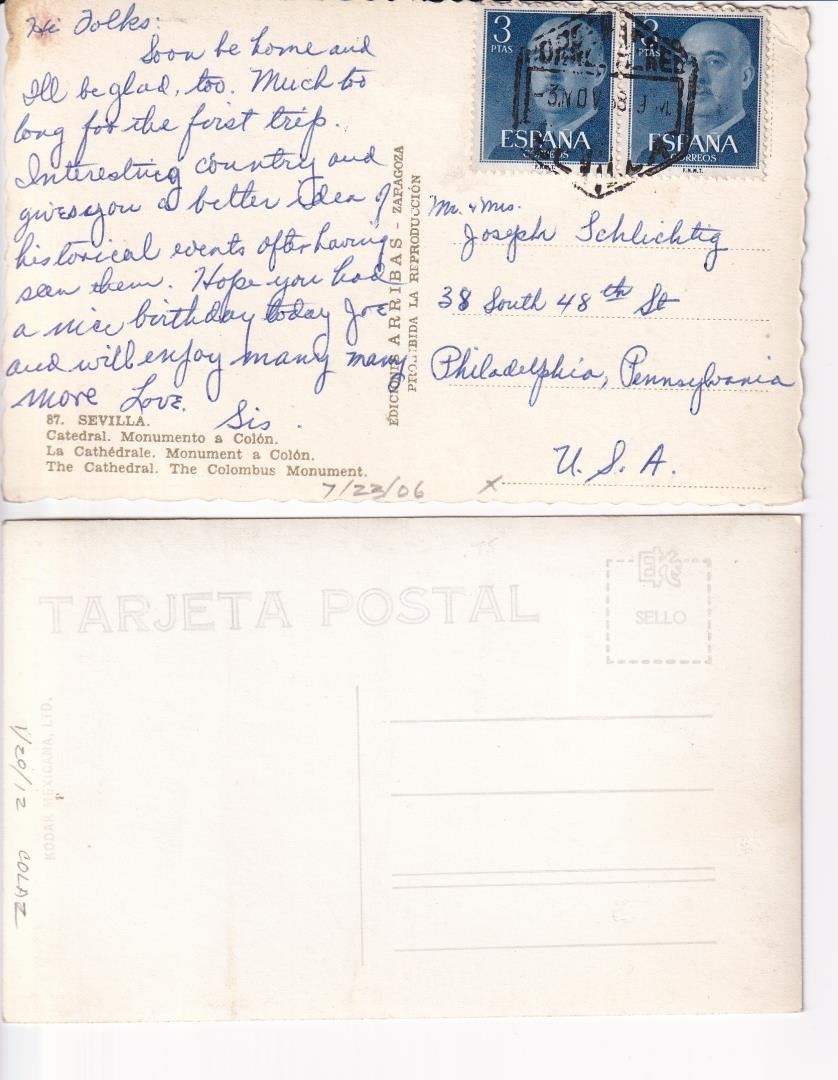 Hi Folks:
Soon be home and
I'll be glad, too. Much too
long for the first trip.
Interesting country and
gives you a better idea of
historical events after having
seen them. Hope you had
a nice birthday today Joe
and will enjoy many many
more Love.
Sis.
87. SEVILLA.
Catedral. Monumento a Colón.
La Cathédrale. Monument a Colón.
The Cathedral. The Colombus Monument.
7/23/06
EDICIONES ARRIBAS - ZARAGOZA
PROHIBIDA LA REPRODUCCIÓN
3
PTAS
ESPAÑA
CORREOS
3
PTAS
ESPAÑA
CORREOS
F.N.M.T.
-3.NOV
SEVILLA
Mr. & Mrs.
Joseph Schlichtig
38 South 48th St
Philadelphia, Pennsylvania
U.S.A.
x
TARJETA POSTAL
SELLO
KODAK MEXICANA, LTD.
1/20/12 COLAZ